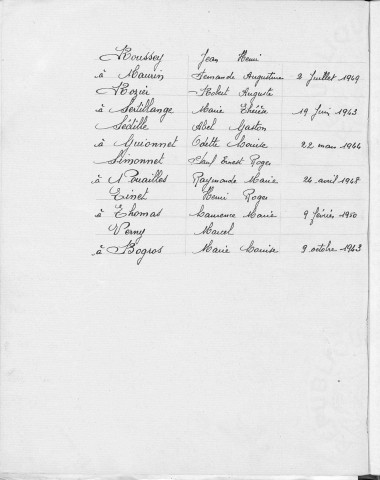 Roussey Jean Henri
à Maurin Fernande Augustine 2 Juillet 1949
Rozée Robert Auguste
à Sertillange Marie Thérèse 19 Juin 1943
Sédille Abel Gaston
à Guionnet Odette Louise 22 mars 1944
Simonnet Paul Ernest Roger
à Pouailles Raymonde Marie 24 avril 1948
Tinet Henri Roger
à Thomas Laurence Marie 9 février 1950
Verny Marcel
à Bogros Marie Louise 9 octobre 1943